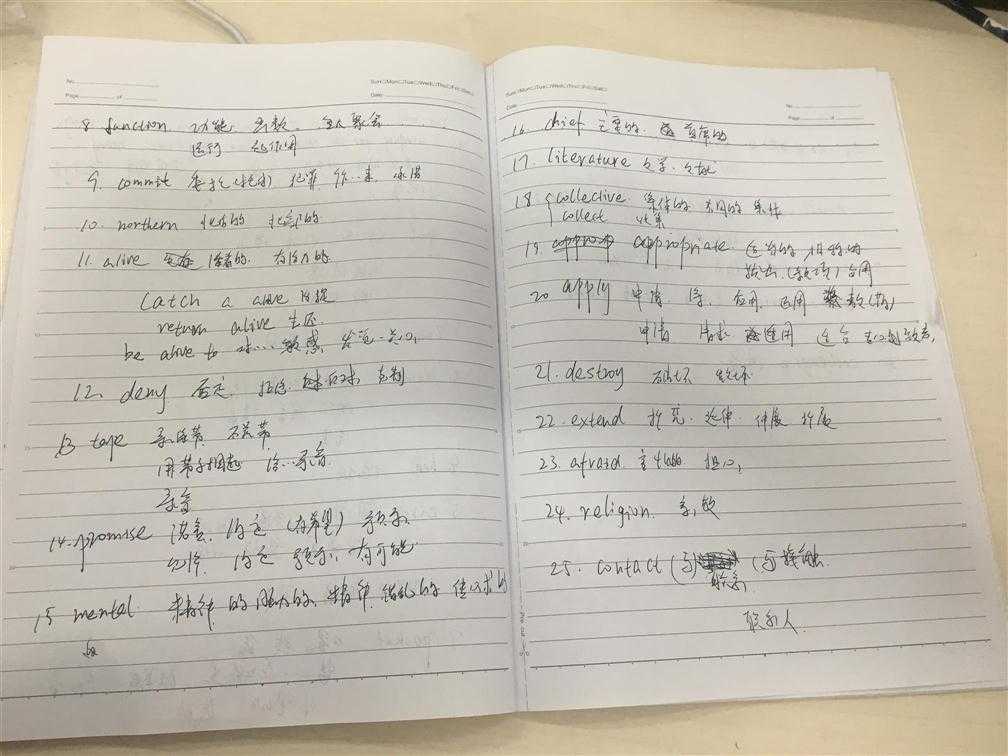 No.
Page of
Sun Mon Tue Wed Thu Fri Sat
Date
8 function 功能 函数 重大聚会
运行 起作用
9. commit 委托(托付) 犯罪 作…束 承诺
10. northern 北方的 北部的
11. alive 活着的. 有活力的
Catch a alive 活捉
return alive 生还.
be alive to 对… 敏感 关心
12. deny 否定 拒绝 反对 克制
13 tape 录音带
用带子捆起 给…录音
录音
14. promise 诺言. 约定 (有希望) 预示
允许 约定 预示 有可能
15 mental 精神的 脑力的 精神错乱的
Sun Mon Tue Wed Thu Fri Sat
Date
No.
Page of
16. chief 主要的. 首席的
17. literature 文学. 文献
18 collective 集体的 共同的 集体
collect 收集
19. appropriate 适当的
拨出 (款项) 合用
20 apply 申请 应用 运用
申请 请求 适用 适合
21. destroy 破坏 毁坏
22. extend 扩充. 延伸 伸展 扩展
23. afraid 害怕的 担心
24. religion. 宗教
25. contact (与) (与接触
联系
联系人